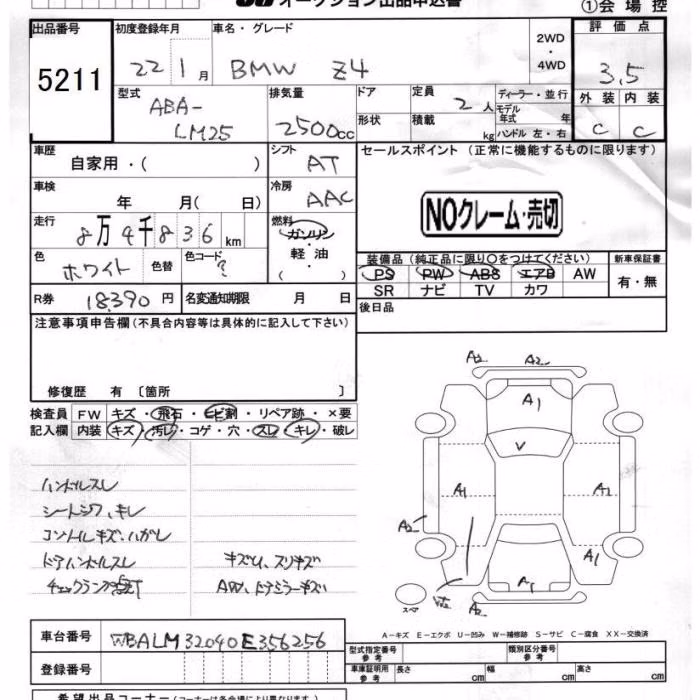 オークション出品申込書
①会場控
出品番号 5211
初度登録年月 22 1月
車名・グレード BMW Z4
2WD・4WD
評価点 3.5
外装 内装
C C
型式 ABA-LM25
排気量 2500cc
ドア
形状
定員 2人
積載 kg
ディーラー・並行
モデル年式 年
ハンドル 左・右
車歴 自家用・( )
シフト AT
セールスポイント (正常に機能するものに限ります)
車検 年 月( 日)
冷房 AAC
NOクレーム・売切
走行 8万4千836km
燃料 ガソリン・軽油・( )
色 ホワイト 色替 色コード ?
装備品 (純正品に限り○をつけてください)
新車保証書
PS PW ABS エアB AW
有・無
SR ナビ TV カワ
R券 18390円 名変通知期限 月 日
後日品
注意事項申告欄(不具合内容等は具体的に記入して下さい)
修復歴 有〔箇所 〕
検査員 FW キズ・飛石・ヒビ割・リペア跡・×要
記入欄 内装 キズ・汚レ・コゲ・穴・スレ・キレ・破レ
ハンドルスレ
シートシワ、キレ
コントロイルキズ、ハガレ
ドアハンドルスレ
キズU、スリキズ
チェックランプ点灯
AW、ドアミラーキズ
A2 A2
A1
V
A1 A1
A2
A1
A1
A2
スペア
A−キズ E−エクボ U−凹み W−補修跡 S−サビ C−腐食 XX−交換済
車台番号 WBALM32040E356256
型式指定番号 参考
類別区分番号 参考
登録番号
車庫証明用 参考 長さ cm 幅 cm 高さ cm
希望出品コーナー(コーナーは各会場により異なります)